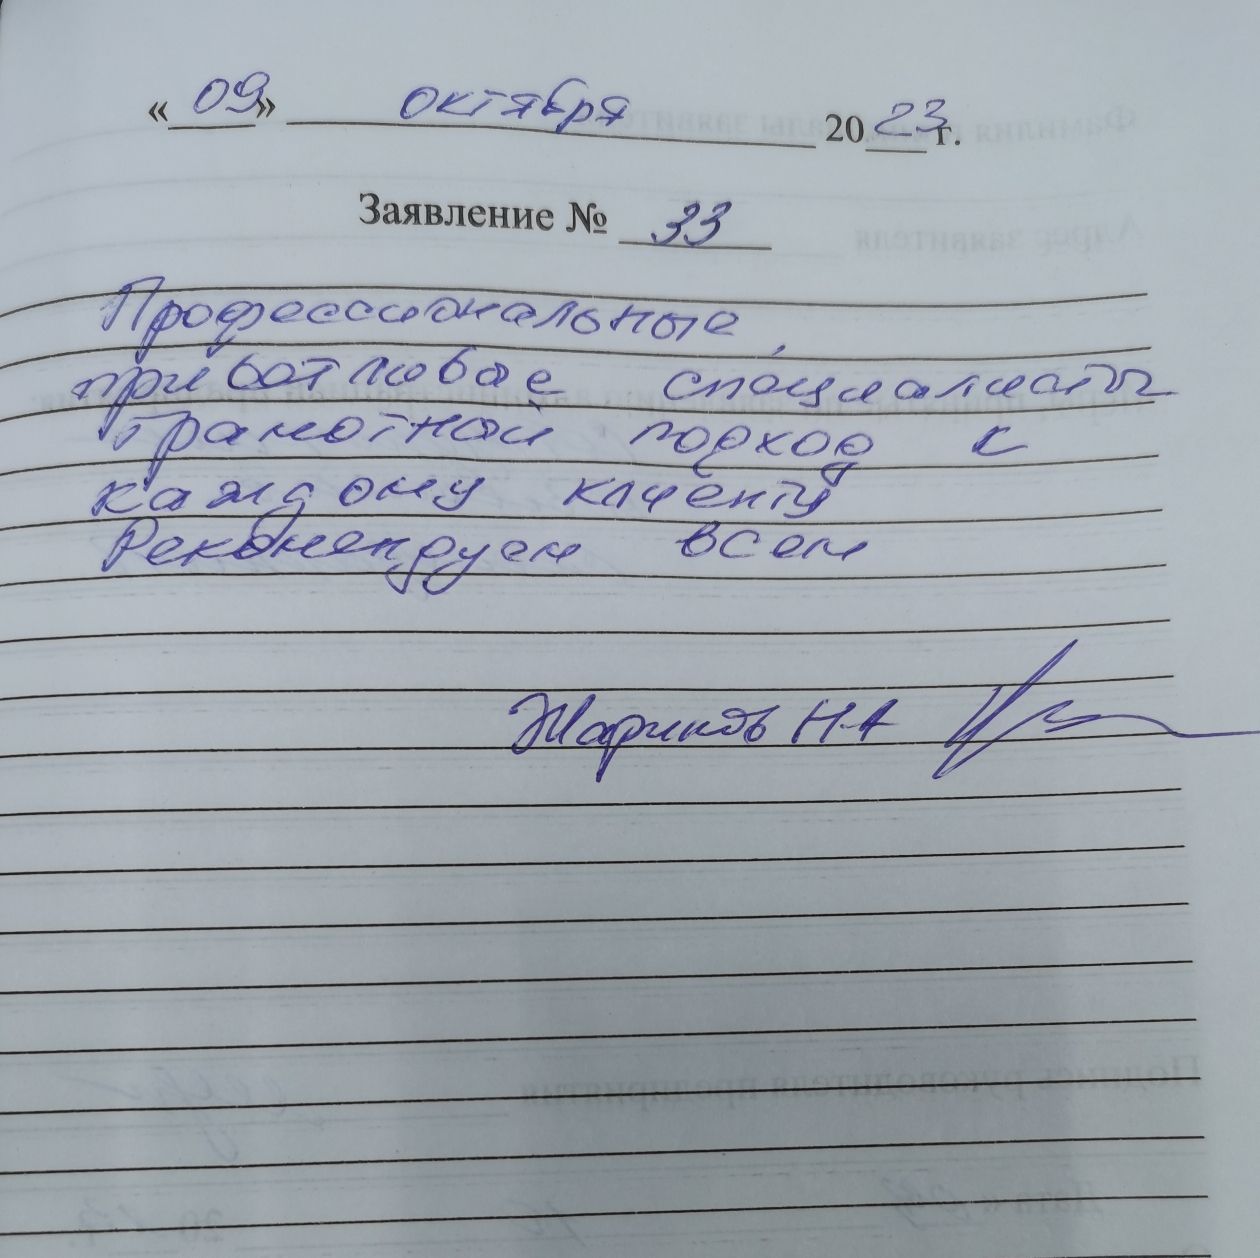 «09» октября 2023 г.
Заявление № 33
Профессиональные,
приветливые специалисты
Грамотный подход к
каждому клиенту
Рекомендуем всем
Жариков Н.А